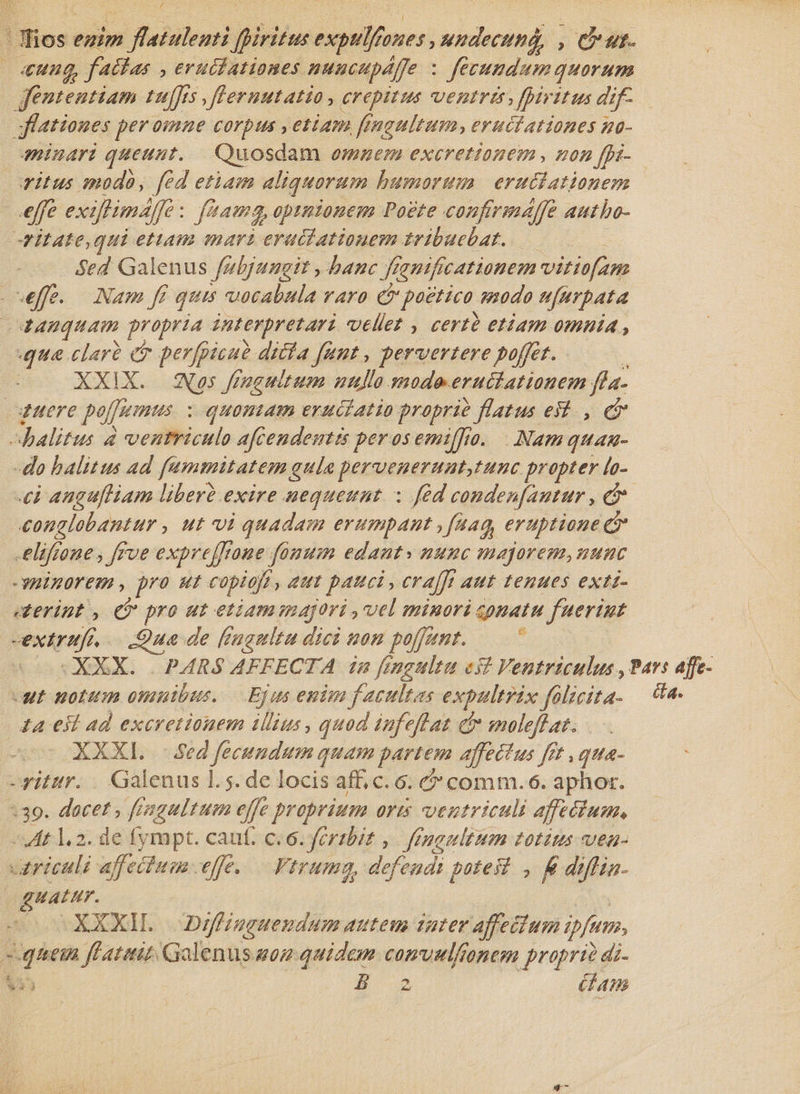 llios enim flatulenti ſpiritus expulſiones, undecunq̃, , & ut-
cunq̃, factas, eructationes nuncupâſſe : ſecundum quorum
ſententiam tuſſis, ſternutatio, crepitus ventris, ſpiritus dif-
flationes per omne corpus, etiam ſingultum, eructationes no-
minari queunt. Quosdam omnem excretionem, non ſpi-
ritus modò, ſed etiam aliquorum humorum eructationem
eſſe exiſtimâſſe : ſuamq̃, opinionem Poëte confirmâſſe autho-
ritate, qui etiam mari eructationem tribuebat.
Sed Galenus ſubjungit, hanc ſignificationem vitioſam
eſſe. Nam ſi quis vocabula raro & poëtico modo uſurpata
tanquam propria interpretari vellet, certè etiam omnia,
quæ clarè & perſpicuè dicta ſunt, pervertere poſſet.
XXIX. Nos ſingultum nullo modo eructationem ſta-
tuere poſſumus : quoniam eructatio propriè flatus eſt, &
halitus à ventriculo aſcendentis per os emiſſio. Nam quan-
do halitus ad ſummitatem gulæ pervenerunt, tunc propter lo-
ci anguſtiam liberè exire nequeunt : ſed condenſantur, &
conglobantur, ut vi quadam erumpant, ſuaq̃, eruptione &
eliſione, ſive expreſſione ſonum edant, nunc majorem, nunc
minorem, pro ut copioſi, aut pauci, craſſi aut tenues exti-
terint, & pro ut etiam majori, vel minori conatu fuerint
extruſi. Quæ de ſingultu dici non poſſunt.
XXX. PARS AFFECTA in ſingultu eſt Ventriculus, Pars affe-
ut notum omnibus. Ejus enim facultas expultrix ſolicita- cta.
ta eſt ad excretionem illius, quod infeſtat & moleſtat.
XXXI. Sed ſecundum quam partem affectus ſit, quæ-
ritur. Galenus l. 5. de locis aff. c. 6. & comm. 6. aphor.
39. docet, ſingultum eſſe proprium oris ventriculi affectum.
At l. 2. de ſympt. cauſ. c. 6. ſcribit, ſingultum totius ven-
triculi affectum eſſe. Utrumq̃, defendi poteſt, ſi diſtin-
guatur.
XXXII. Diſtinguendum autem inter affectum ipſum,
quem ſtatuit Galenus non quidem convulſionem propriè di-
B 2 ctam